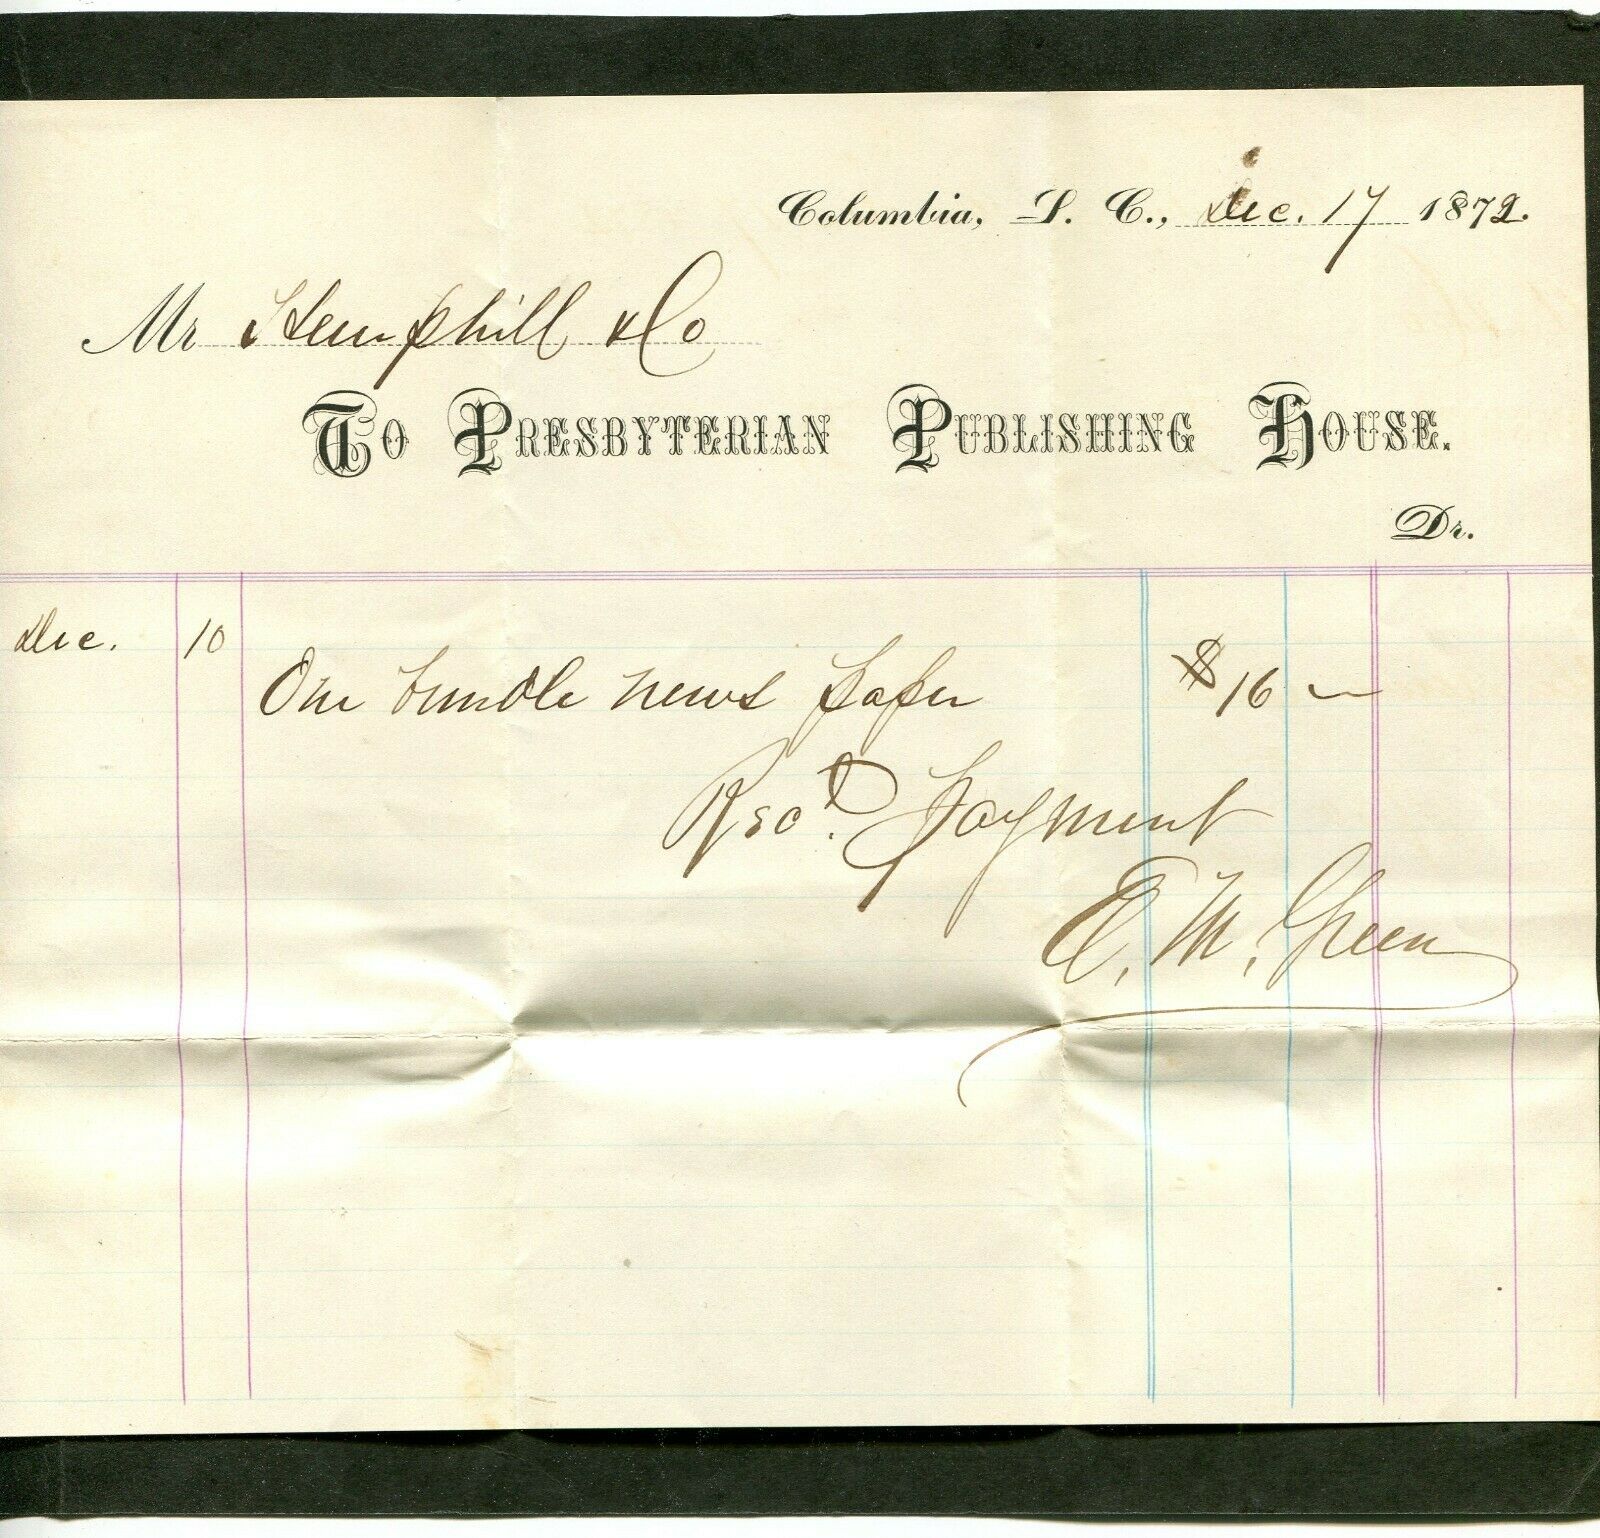 Columbia, S. C., Dec. 17 1872.
Mr Hemphill & Co
To Presbyterian Publishing House.
Dr.
Dec. 10
One bundle news paper $16 —
Rec'd. payment
E. M. Green